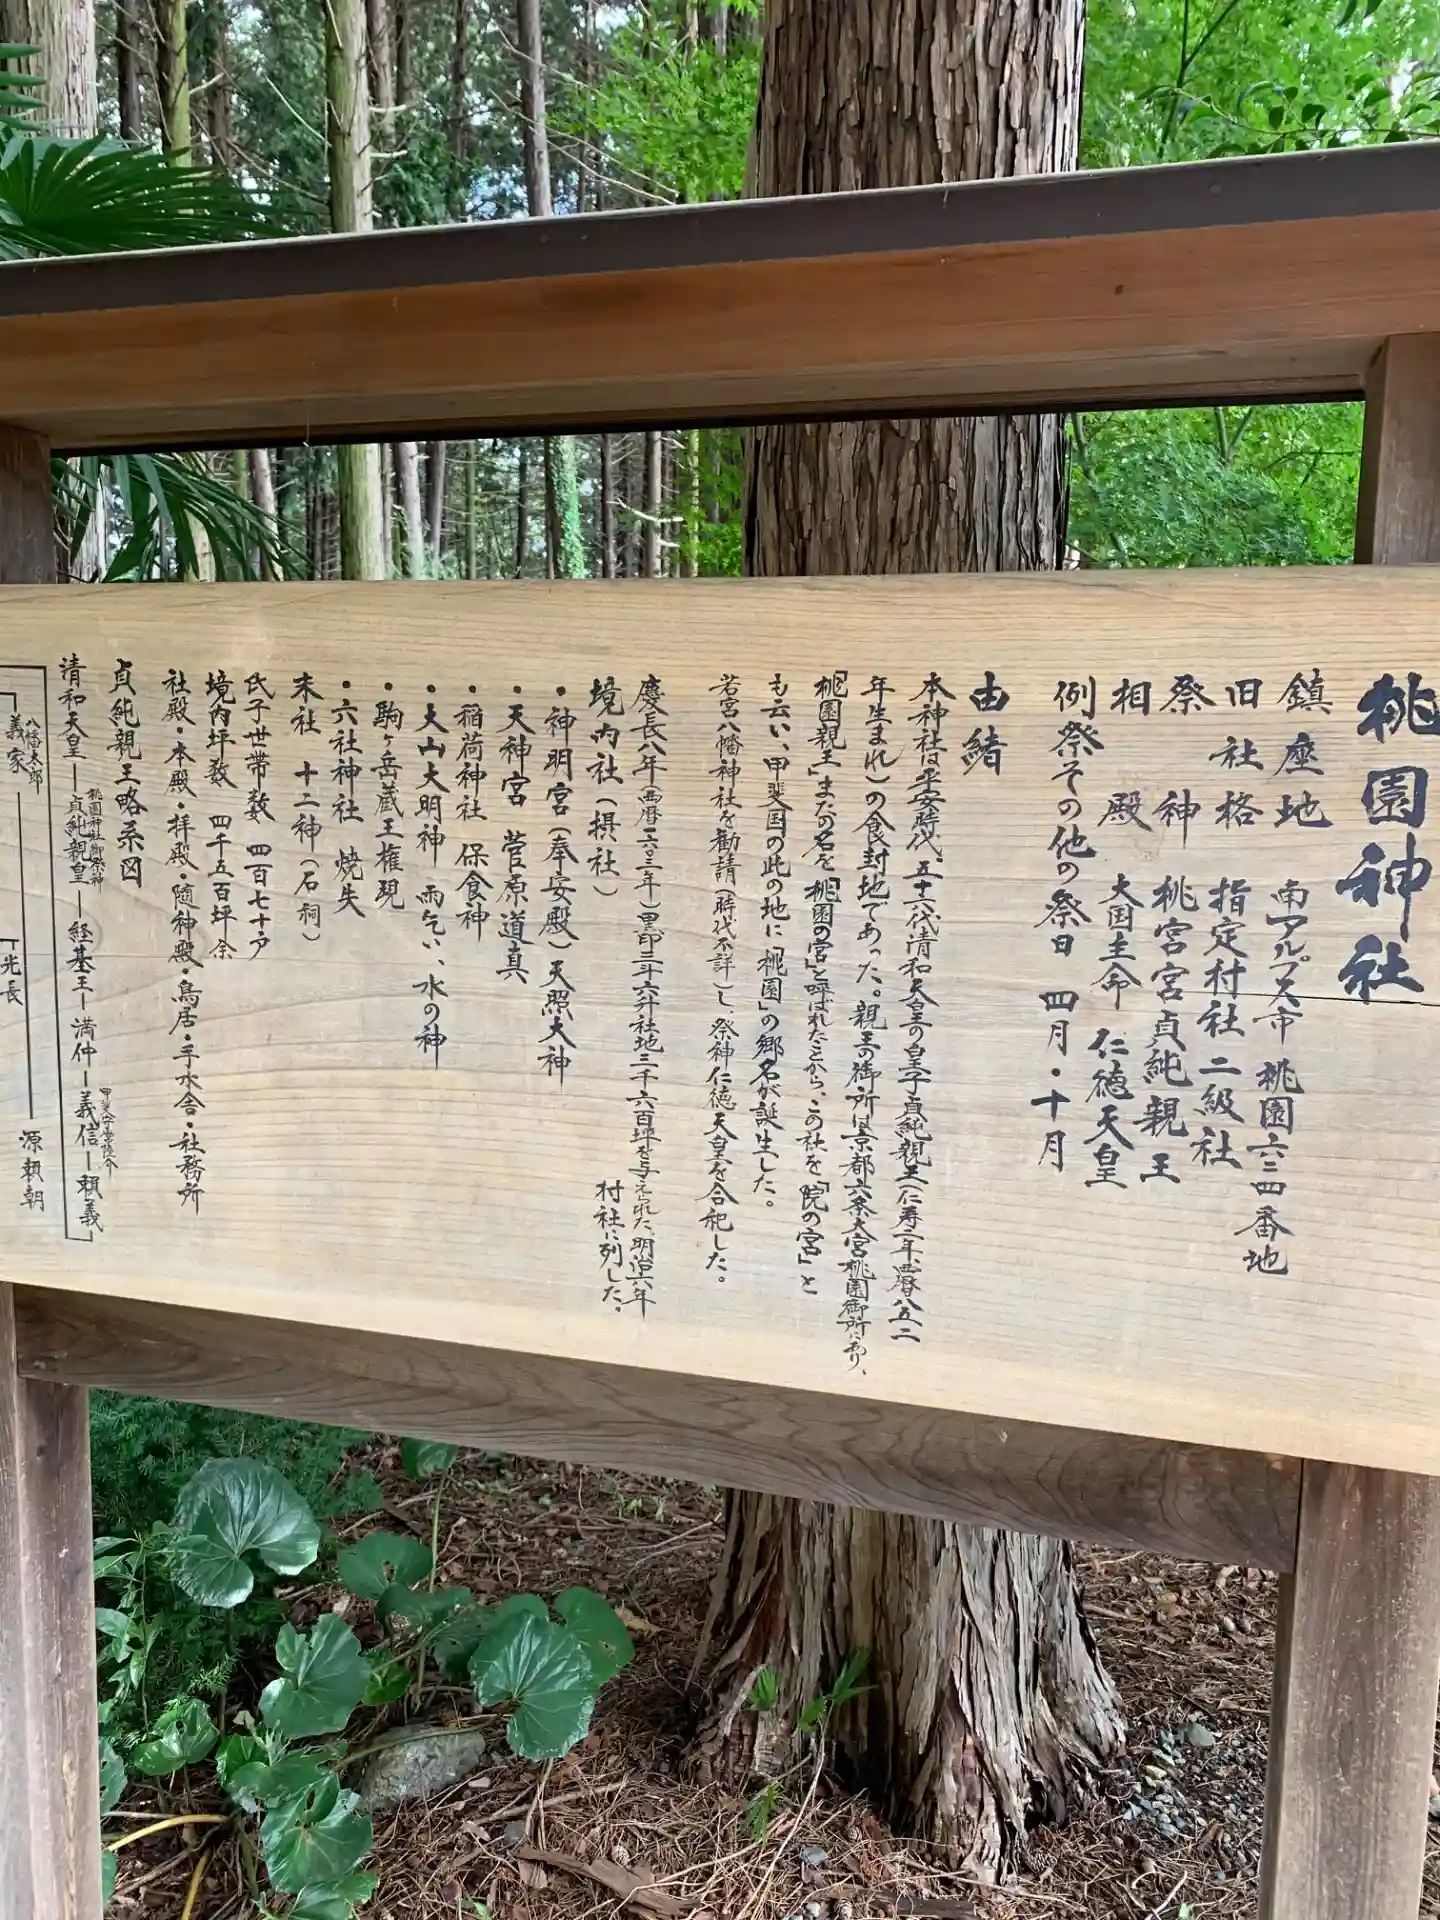 桃園神社
鎮座地 南アルプス市 桃園六三四番地
旧社格 指定村社 二級社
祭神 桃宮宮貞純親王
相殿 大国主命 仁徳天皇
例祭その他の祭日 四月・十月
由緒
本神社は平安時代、五十六代清和天皇の皇子貞純親王(仁寿二年、西暦八五二
年生まれ)の食封地であった。親王の御所は京都六条大宮桃園御所にあり、
「桃園親王」またの名を「桃園の宮」と呼ばれたことから、この社を「院の宮」と
も云い、甲斐国の此の地に「桃園」の郷名が誕生した。
若宮八幡神社を勧請(時代不詳)し、祭神仁徳天皇を合祀した。
慶長八年(西暦一六〇三年)黒印三斗六升社地三千六百坪を与えられた、明治六年
村社に列した。
境内社(摂社)
・神明宮(奉安殿)天照大神
・天神宮 菅原道真
・稲荷神社 保食神
・大山大明神 雨乞い、水の神
・駒ヶ岳蔵王権現
・六社神社 焼失
末社 十二神(石祠)
氏子世帯数 四百七十戸
境内坪数 四千五百坪余
社殿・本殿・拝殿・随神殿・鳥居・手水舎・社務所
貞純親王略系図
桃園神社御祭神
清和天皇―貞純親皇―経基王―満仲―義信―頼義
八幡太郎
義家 源頼朝
光長